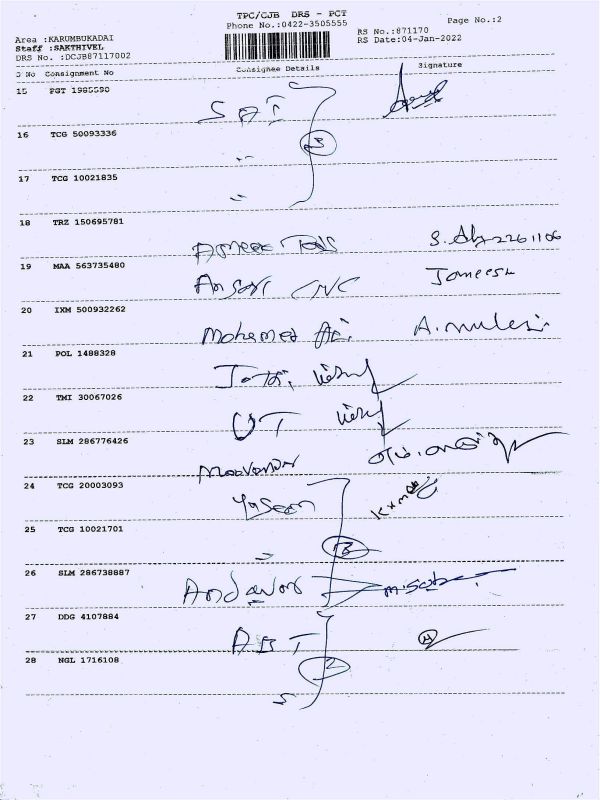 TPC/CJB DRS - PCT
Phone No.:0422-3505555
Page No.:2
Area :KARUMBUKADAI
RS No.:871170
Staff :SAKTHIVEL
RS Date:04-Jan-2022
DRS No. :DCJB87117002
S No Consignment No Consignee Details Signature
15 PGT 1985590 SAI
3
16 TCG 50093336
17 TCG 10021835
18 TRZ 150695781
19 MAA 563735480 Ansari CNC Jameesh
20 IXM 500932262 Mohamed Ali
21 POL 1488328
22 TMI 30067026 UT
23 SLM 286776426
24 TCG 20003093 Yaseen
25 TCG 10021701
26 SLM 286738887 Andavar
27 DDG 4107884 ABT
28 NGL 1716108 2